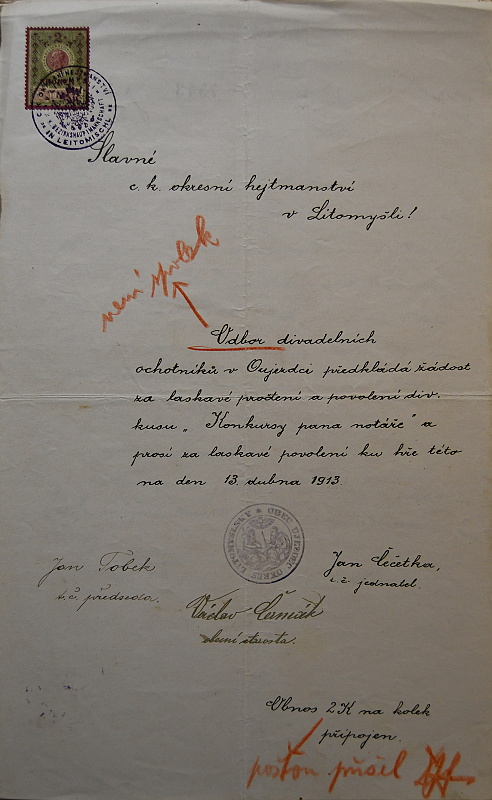 2
C. K. OKRESNÍ HEJTMANSTVÍ
K. K. BEZIRKSHAUPTMANNSCHAFT
IN LEITOMISCHL
Slavné
c. k. okresní hejtmanství
v Litomyšli!
není spolek
Odbor divadelních
ochotníků v Oujezdci předkládá žádost
za laskavé pročtení a povolení div.
kusu „Konkursy pana notáře" a
prosí za laskavé povolení ku hře této
na den 13. dubna 1913.
OBEC UJEZDEC OKRES LITOMYŠLSKÝ
Jan Tobek
t. č. předseda.
Jan Čečetka,
t. č. jednatel
Václav Čermák
obecní starosta.
Obnos 2 K na kolek
připojen.
poštou přišel